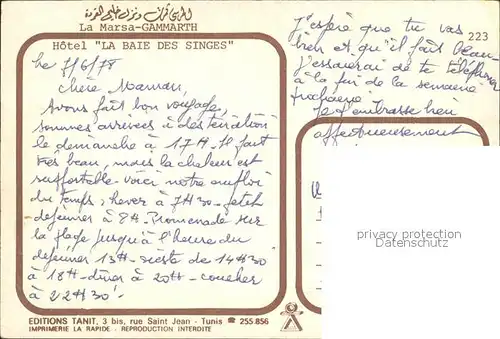 المرسى قمرت
La Marsa-GAMMARTH
Hôtel "LA BAIE DES SINGES"
le 7/6/78
Chère Maman,
Avons fait bon voyage,
sommes arrivées à destination
le demanche à 17H. Il fait
très beau, mais la chaleur est
supportable - voici notre emploi
du temps; lever à 7H30 - petit
déjeuner à 8H. Promenade sur
la plage jusqu'à l'heure du
déjeuner 13H - sieste de 14H30
à 18H - dîner à 20H - coucher
à 22H30'
J'espère que tu vas
bien et qu'il fait beau
J'essaierai de te téléphoner
à la fin de la semaine
prochaine.
Je t'embrasse bien
affectueusement
223
privacy protection
Datenschutz
EDITIONS TANIT, 3 bis, rue Saint Jean - Tunis ☎ 255.856
IMPRIMERIE LA RAPIDE - REPRODUCTION INTERDITE